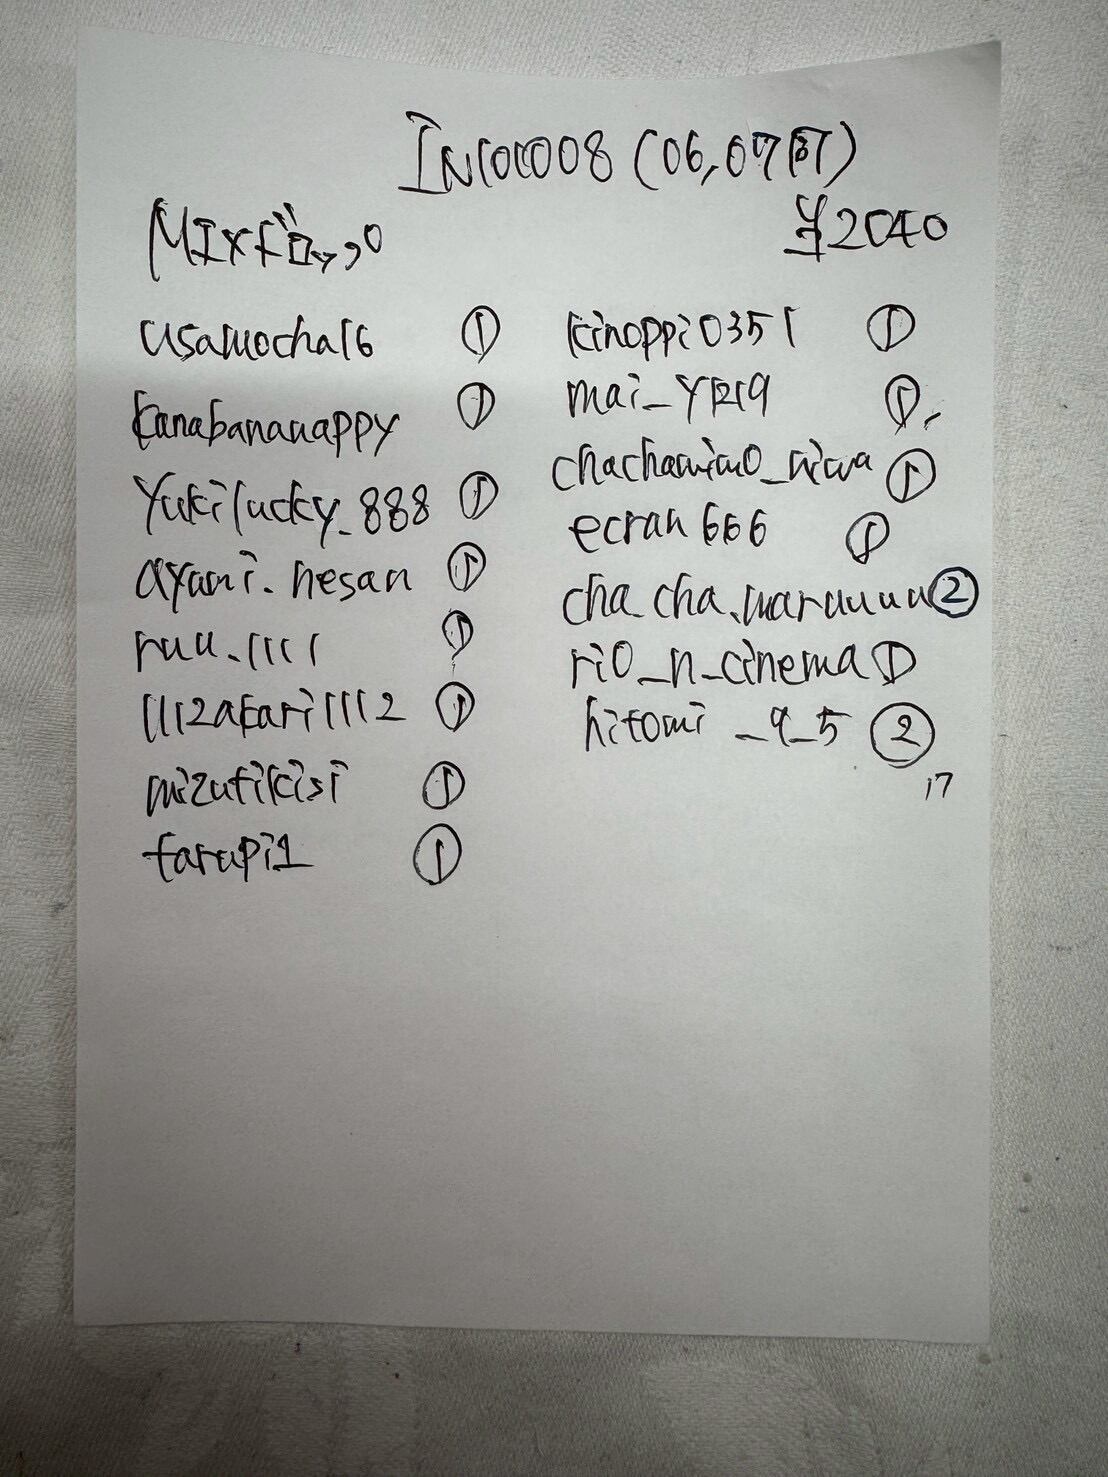 IN100008 (06,07同)
MIXドロップ ¥2040
usamocha16 ①
kanabananappy ①
yukilucky_888 ①
ayami.nesan ①
ruu.1111 ①
1112akari1112 ①
mizutikisi ①
farupi1 ①
kinoppi0351 ①
mai_y1219 ①
chachamimo_niwa ①
ecran666 ①
cha_cha.maruuuu ②
rio_n_cinema ①
hitomi_9_5 ②
17